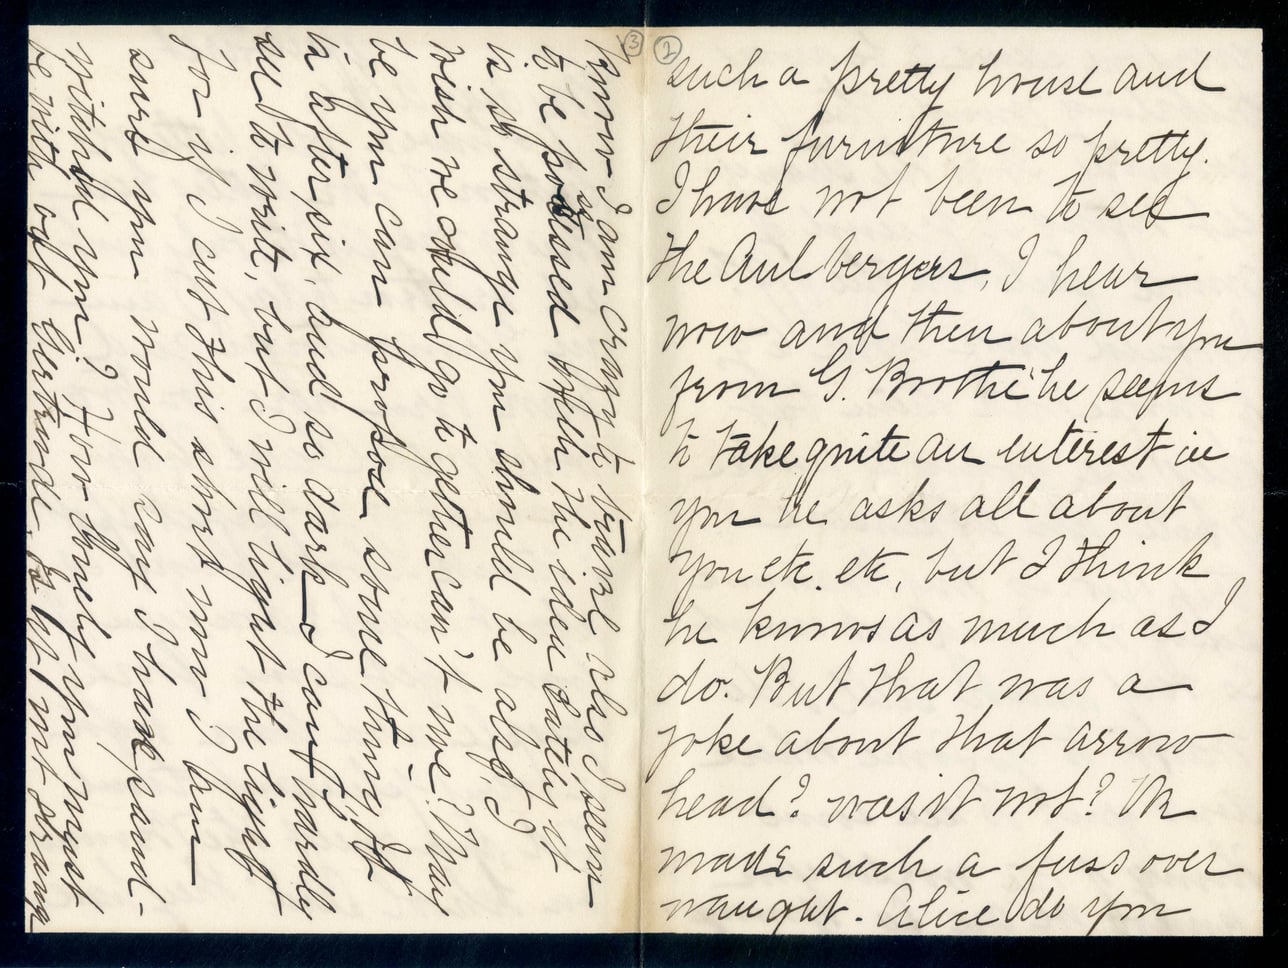 2
such a pretty house and
their furniture so pretty.
I have not been to see
the Aulbergers, I hear
now and then about you
from G. Brothe' he seems
to take quite an interest in
you he asks all about
you etc. etc, but I think
he knows as much as I
do. But that was a
joke about that arrow
head? was it not? We
made such a fuss over
naught. Alice do you
3
know I am crazy to travel also I seem
to be possessed with the idea lately it
is so strange you should be also, I
wish we could go together can't we? May
be you can propose some thing, It
is after six, and so dark I can hardly
see to write, but I will light the light
for if I cut this short now I am
sure you would say I had cand-
vitated you? Four bonnet you must
be with out Gertrude, is it not strange